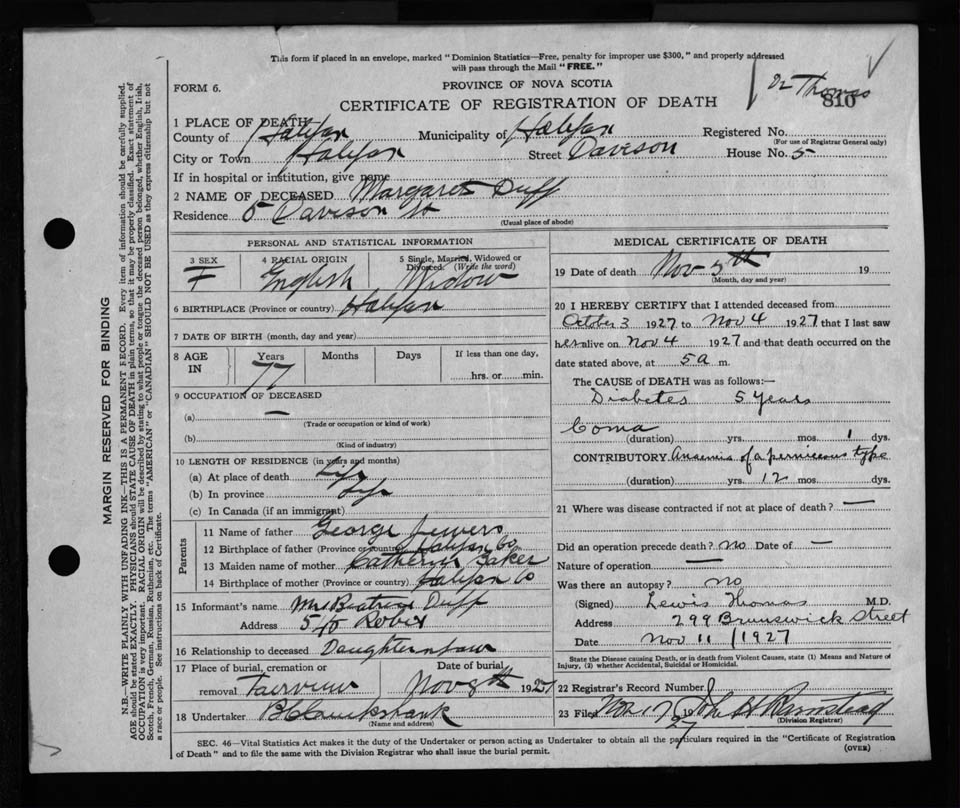 This form if placed in an envelope, marked "Dominion Statistics—Free, penalty for improper use $300," and properly addressed
will pass through the Mail "FREE."
FORM 6.
PROVINCE OF NOVA SCOTIA
CERTIFICATE OF REGISTRATION OF DEATH
Thomas
810
1 PLACE OF DEATH
County of Halifax Municipality of Halifax Registered No.
(For use of Registrar General only)
City or Town Halifax Street Davison House No. 5
If in hospital or institution, give name
2 NAME OF DECEASED Margaret Duff
Residence 5 Davison St
(Usual place of abode)
PERSONAL AND STATISTICAL INFORMATION
3 SEX 4 RACIAL ORIGIN 5 Single, Married, Widowed or
Divorced. (Write the word)
F English Widow
6 BIRTHPLACE (Province or country) Halifax
7 DATE OF BIRTH (month, day and year)
8 AGE IN Years Months Days If less than one day,
77 hrs. or min.
9 OCCUPATION OF DECEASED
(a) —
(Trade or occupation or kind of work)
(b)
(Kind of industry)
10 LENGTH OF RESIDENCE (in years and months)
(a) At place of death Life
(b) In province Life
(c) In Canada (if an immigrant)
Parents
11 Name of father George Jewers
12 Birthplace of father (Province or country) Halifax Co
13 Maiden name of mother Catherine Baker
14 Birthplace of mother (Province or country) Halifax Co
15 Informant's name Mrs Beatrice Duff
Address
16 Relationship to deceased Daughter in law
17 Place of burial, cremation or Date of burial
removal Fairview Nov 8th 1927
18 Undertaker
(Name and address)
MEDICAL CERTIFICATE OF DEATH
19 Date of death Nov 5th 19
(Month, day and year)
20 I HEREBY CERTIFY that I attended deceased from
October 3 1927 to Nov 4 1927 that I last saw
her alive on Nov 4 1927 and that death occurred on the
date stated above, at 5 a m.
The CAUSE of DEATH was as follows:—
Diabetes 5 years
Coma
(duration) yrs. mos. 1 dys.
CONTRIBUTORY Anaemia of a pernicious type
(duration) yrs. 12 mos. dys.
21 Where was disease contracted if not at place of death? —
Did an operation precede death? no Date of —
Nature of operation —
Was there an autopsy? no
(Signed) Lewis Thomas M.D.
Address 299 Brunswick Street
Date Nov 11 / 1927
State the Disease causing Death, or in death from Violent Causes, state (1) Means and Nature of
Injury, (2) whether Accidental, Suicidal or Homicidal.
22 Registrar's Record Number
23 Filed
(Division Registrar)
SEC. 46—Vital Statistics Act makes it the duty of the Undertaker or person acting as Undertaker to obtain all the particulars required in the "Certificate of Registration
of Death" and to file the same with the Division Registrar who shall issue the burial permit.
(OVER)
MARGIN RESERVED FOR BINDING
N.B.—WRITE PLAINLY WITH UNFADING INK—THIS IS A PERMANENT RECORD. Every item of information should be carefully supplied.
AGE should be stated EXACTLY. PHYSICIANS should STATE CAUSE OF DEATH in plain terms, so that it may be properly classified. Exact statement of
OCCUPATION is very important. RACIAL ORIGIN will be described by stating to what people or tongue the deceased person belonged, whether English, Irish,
Scotch, French, German, Russian, Ruthenian, etc. The terms "AMERICAN" or "CANADIAN" SHOULD NOT BE USED as they express citizenship but not
a race or people. See instructions on back of Certificate.